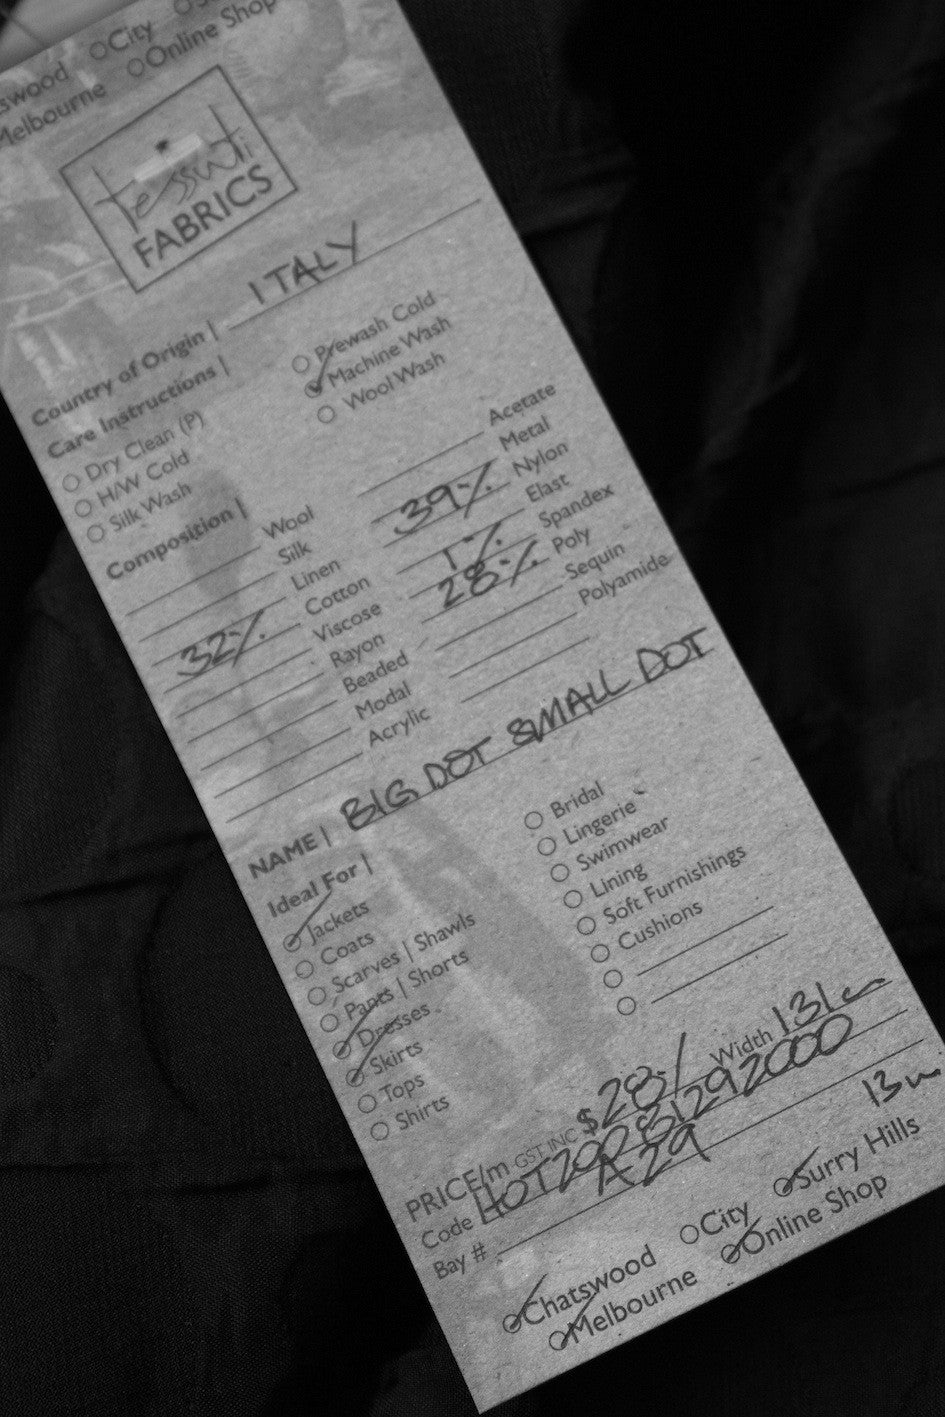 swood
City
Melbourne
Online Shop
tessuti
FABRICS
Country of Origin | ITALY
Care Instructions |
Dry Clean (P)
H/W Cold
Silk Wash
Prewash Cold
Machine Wash
Wool Wash
Composition |
Wool
Silk
Linen
32% Cotton
Viscose
Rayon
Beaded
Modal
Acrylic
Acetate
Metal
39% Nylon
Elast
1% Spandex
28% Poly
Sequin
Polyamide
NAME | BIG DOT SMALL DOT
Ideal For |
Jackets
Coats
Scarves | Shawls
Pants | Shorts
Dresses
Skirts
Tops
Shirts
Bridal
Lingerie
Swimwear
Lining
Soft Furnishings
Cushions
PRICE/m GST INC $28·/ Width 131cm
Code HOT200B1292000
Bay # A29 13m
Chatswood City Surry Hills
Melbourne Online Shop